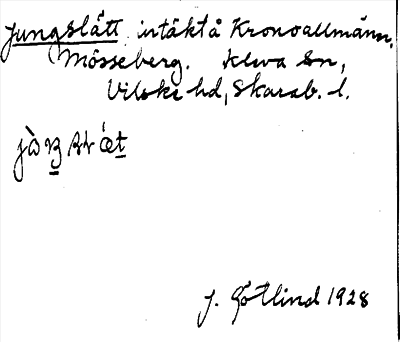 Jungslätt intäkt å Kronoallmänn.
Mösseberg. Kleva Sn,
Vilske hd, Skarab. l.
J. Götlind 1928